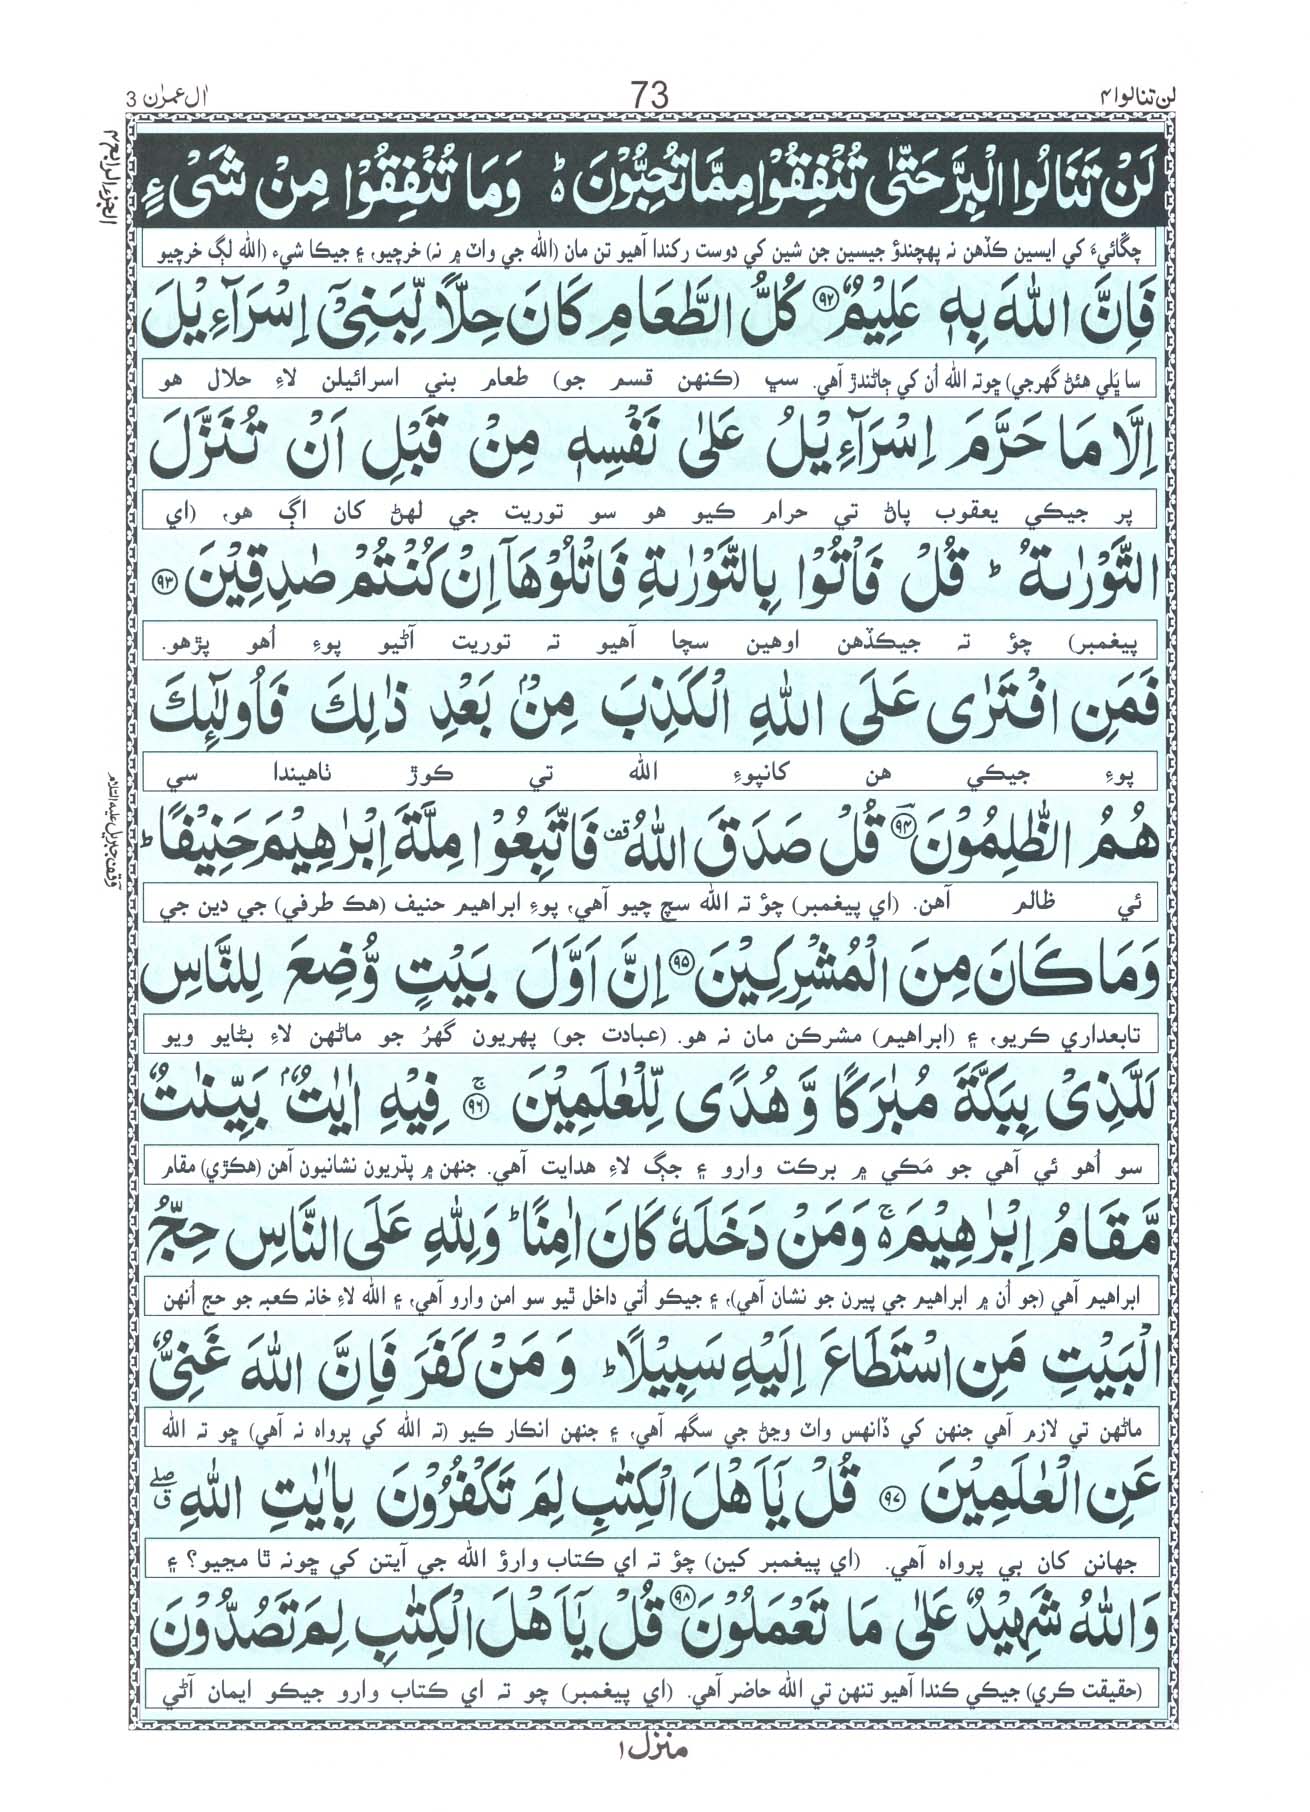 لن تنالوا ۴
73
اٰل عمرٰن 3
الجزء الرابع ۴
لَنْ تَنَالُوا الْبِرَّ حَتّٰى تُنْفِقُوْا مِمَّا تُحِبُّوْنَ ؕ وَمَا تُنْفِقُوْا مِنْ شَیْءٍ
چڱائيءَ کي ايسين ڪڏهن نہ پهچندؤ جيسين جن شين کي دوست رکندا آهيو تن مان (الله جي واٽ ۾ نہ) خرچيو، ۽ جيڪا شيء (الله لڳ خرچيو
فَاِنَّ اللّٰهَ بِهٖ عَلِيْمٌ ﴿۹۲﴾ كُلُّ الطَّعَامِ كَانَ حِلًّا لِّبَنِيْۤ اِسْرَآءِيْلَ
سا ڀَلي هئڻ گهرجي) ڇوتہ الله اُن کي ڄاڻندڙ آهي. سڀ (ڪنهن قسم جو) طعام بني اسرائيلن لاءِ حلال هو
اِلَّا مَا حَرَّمَ اِسْرَآءِيْلُ عَلٰى نَفْسِهٖ مِنْ قَبْلِ اَنْ تُنَزَّلَ
پر جيڪي يعقوب پاڻ تي حرام ڪيو هو سو توريت جي لهڻ کان اڳ هو، (اي
التَّوْرٰىةُ ؕ قُلْ فَاْتُوْا بِالتَّوْرٰىةِ فَاتْلُوْهَاۤ اِنْ كُنْتُمْ صٰدِقِيْنَ ﴿۹۳﴾
پيغمبر) چؤ تہ جيڪڏهن اوهين سچا آهيو تہ توريت آڻيو پوءِ اُهو پڙهو.
فَمَنِ افْتَرٰى عَلَى اللّٰهِ الْكَذِبَ مِنْۢ بَعْدِ ذٰلِكَ فَاُولٰٓئِكَ
پوءِ جيڪي هن کانپوءِ الله تي ڪوڙ ٺاهيندا سي
وقف جبريل عليه السلام
هُمُ الظّٰلِمُوْنَ ﴿۹۴﴾ قُلْ صَدَقَ اللّٰهُ ۟ قف فَاتَّبِعُوْا مِلَّةَ اِبْرٰهِيْمَ حَنِيْفًا ؕ
ئي ظالم آهن. (اي پيغمبر) چؤ تہ الله سچ چيو آهي، پوءِ ابراهيم حنيف (هڪ طرفي) جي دين جي
وَمَا كَانَ مِنَ الْمُشْرِكِيْنَ ﴿۹۵﴾ اِنَّ اَوَّلَ بَيْتٍ وُّضِعَ لِلنَّاسِ
تابعداري ڪريو، ۽ (ابراهيم) مشرڪن مان نہ هو. (عبادت جو) پهريون گهرُ جو ماڻهن لاءِ بڻايو ويو
لَلَّذِيْ بِبَكَّةَ مُبٰرَكًا وَّهُدًى لِّلْعٰلَمِيْنَ ﴿۹۶﴾ۚ فِيْهِ اٰيٰتٌۢ بَيِّنٰتٌ
سو اُهو ئي آهي جو مَڪي ۾ برڪت وارو ۽ جڳ لاءِ هدايت آهي. جنهن ۾ پڌريون نشانيون آهن (هڪڙي) مقام
مَّقَامُ اِبْرٰهِيْمَ ۚ وَمَنْ دَخَلَهٗ كَانَ اٰمِنًا ؕ وَلِلّٰهِ عَلَى النَّاسِ حِجُّ
ابراهيم آهي (جو اُن ۾ ابراهيم جي پيرن جو نشان آهي)، ۽ جيڪو اُتي داخل ٿيو سو امن وارو آهي، ۽ الله لاءِ خانہ ڪعبہ جو حج اُنهن
الْبَيْتِ مَنِ اسْتَطَاعَ اِلَيْهِ سَبِيْلًا ؕ وَمَنْ كَفَرَ فَاِنَّ اللّٰهَ غَنِيٌّ
ماڻهن تي لازم آهي جنهن کي ڏانهس واٽ وڃڻ جي سگهہ آهي، ۽ جنهن انڪار ڪيو (تہ الله کي پرواہ نہ آهي) ڇو تہ الله
عَنِ الْعٰلَمِيْنَ ﴿۹۷﴾ قُلْ يٰۤاَهْلَ الْكِتٰبِ لِمَ تَكْفُرُوْنَ بِاٰيٰتِ اللّٰهِ ۖق
جهانن کان بي پرواہ آهي. (اي پيغمبر کين) چؤ تہ اي ڪتاب وارؤ الله جي آيتن کي ڇونہ ٿا مڃيو؟ ۽
وَاللّٰهُ شَهِيْدٌ عَلٰى مَا تَعْمَلُوْنَ ﴿۹۸﴾ قُلْ يٰۤاَهْلَ الْكِتٰبِ لِمَ تَصُدُّوْنَ
(حقيقت ڪري) جيڪي ڪندا آهيو تنهن تي الله حاضر آهي. (اي پيغمبر) چو تہ اي ڪتاب وارو جيڪو ايمان آڻي
منزل ۱